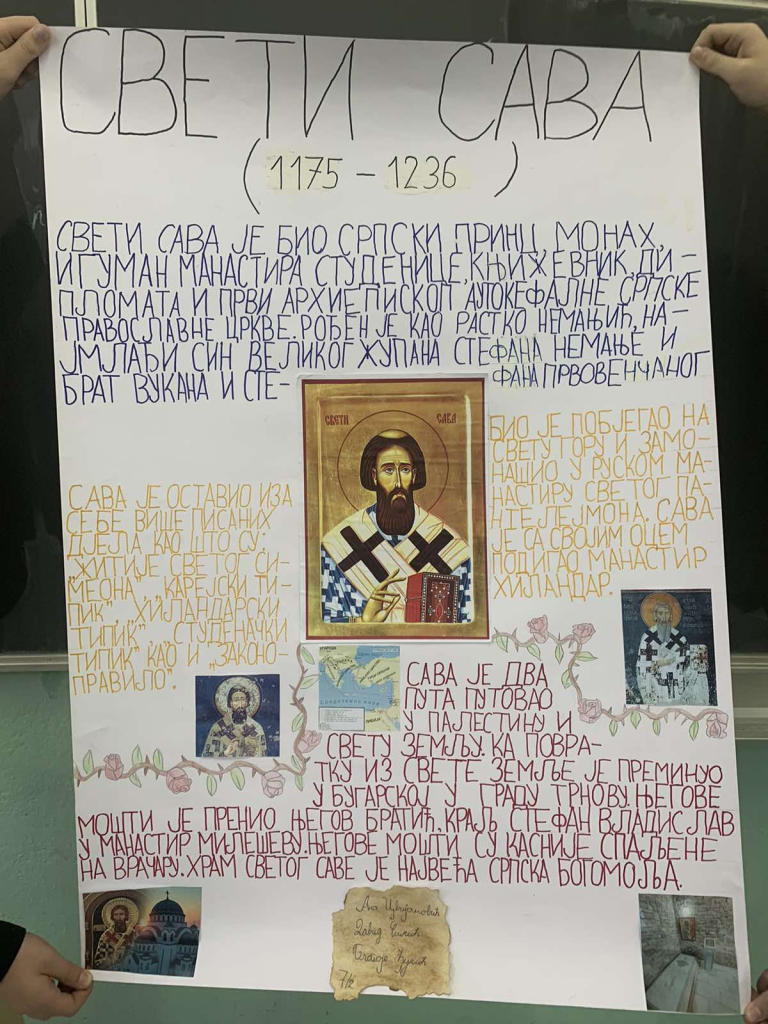 СВЕТИ САВА
(1175 – 1236)
СВЕТИ САВА ЈЕ БИО СРПСКИ ПРИНЦ, МОНАХ,
ИГУМАН МАНАСТИРА СТУДЕНИЦЕ, КЊИЖЕВНИК, ДИ–
ПЛОМАТА И ПРВИ АРХИЕПИСКОП АУТОКЕФАЛНЕ СРПСКЕ
ПРАВОСЛАВНЕ ЦРКВЕ. РОЂЕН ЈЕ КАО РАСТКО НЕМАЊИЋ, НА–
ЈМЛАЂИ СИН ВЕЛИКОГ ЖУПАНА СТЕФАНА НЕМАЊЕ И
БРАТ ВУКАНА И СТЕ– ФАНА ПРВОВЕНЧАНОГ
СВЕТИ САВА
САВА ЈЕ ОСТАВИО ИЗА
СЕБЕ ВИШЕ ПИСАНИХ
ДЈЕЛА КАО ШТО СУ:
"ЖИТИЈЕ СВЕТОГ СИ–
МЕОНА", КАРЕЈСКИ ТИ–
ПИК", ХИЛАНДАРСКИ
ТИПИК", СТУДЕНАЧКИ
ТИПИК" КАО И „ЗАКОНО–
ПРАВИЛО".
БИО ЈЕ ПОБЈЕГАО НА
СВЕТУ ГОРУ И ЗАМО–
НАШИО У РУСКОМ МА–
НАСТИРУ СВЕТОГ ПА–
НТЕЛЕЈМОНА. САВА
ЈЕ СА СВОЈИМ ОЦЕМ
ПОДИГАО МАНАСТИР
ХИЛАНДАР.
САВА ЈЕ ДВА
ПУТА ПУТОВАО
У ПАЛЕСТИНУ И
СВЕТУ ЗЕМЉУ. КА ПОВРА–
ТКУ ИЗ СВЕТЕ ЗЕМЉЕ ЈЕ ПРЕМИНУО
У БУГАРСКОЈ У ГРАДУ ТРНОВУ. ЊЕГОВЕ
МОШТИ ЈЕ ПРЕНИО ЊЕГОВ БРАТИЋ, КРАЉ СТЕФАН ВЛАДИСЛАВ
У МАНАСТИР МИЛЕШЕВУ. ЊЕГОВЕ МОШТИ СУ КАСНИЈЕ СПАЉЕНЕ
НА ВРАЧАРУ. ХРАМ СВЕТОГ САВЕ ЈЕ НАЈВЕЋА СРПСКА БОГОМОЉА.
Ана
Давид